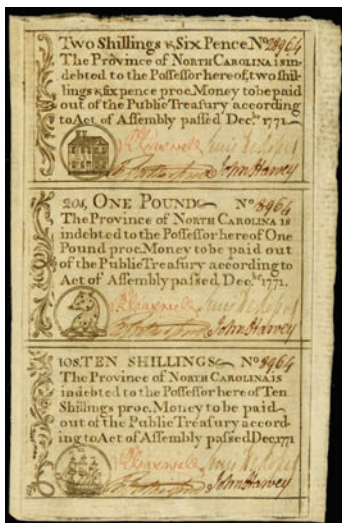 Two Shillings & Six Pence. No 28964
The Province of NORTH CAROLINA is in-
debted to the Possessor hereof, two shil-
lings & six pence proc. Money to be paid
out of the Public Treasury according
to Act of Assembly passed Decbr 1771
John Harvey
20s, ONE POUND No 8964
The Province of NORTH CAROLINA is
indebted to the Possessor hereof One
Pound proc. Money to be paid out
of the Public Treasury according to
Act of Assembly passed, Decbr 1771.
John Harvey
10s. TEN SHILLINGS No 8964
The Province of NORTH CAROLINA IS
indebted to the Possessor hereof Ten
Shillings proc. Money to be paid
out of the Public Treasury accord-
ing to Act of Assembly passed Dec. 1771
John Harvey